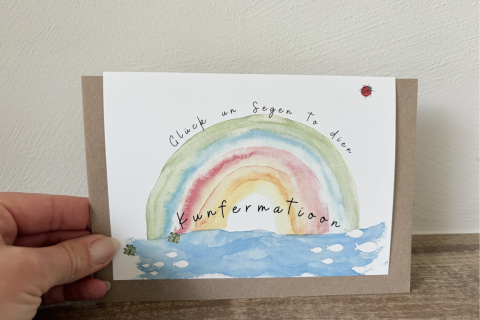 Glück un Segen to dien
Kunfermatioon